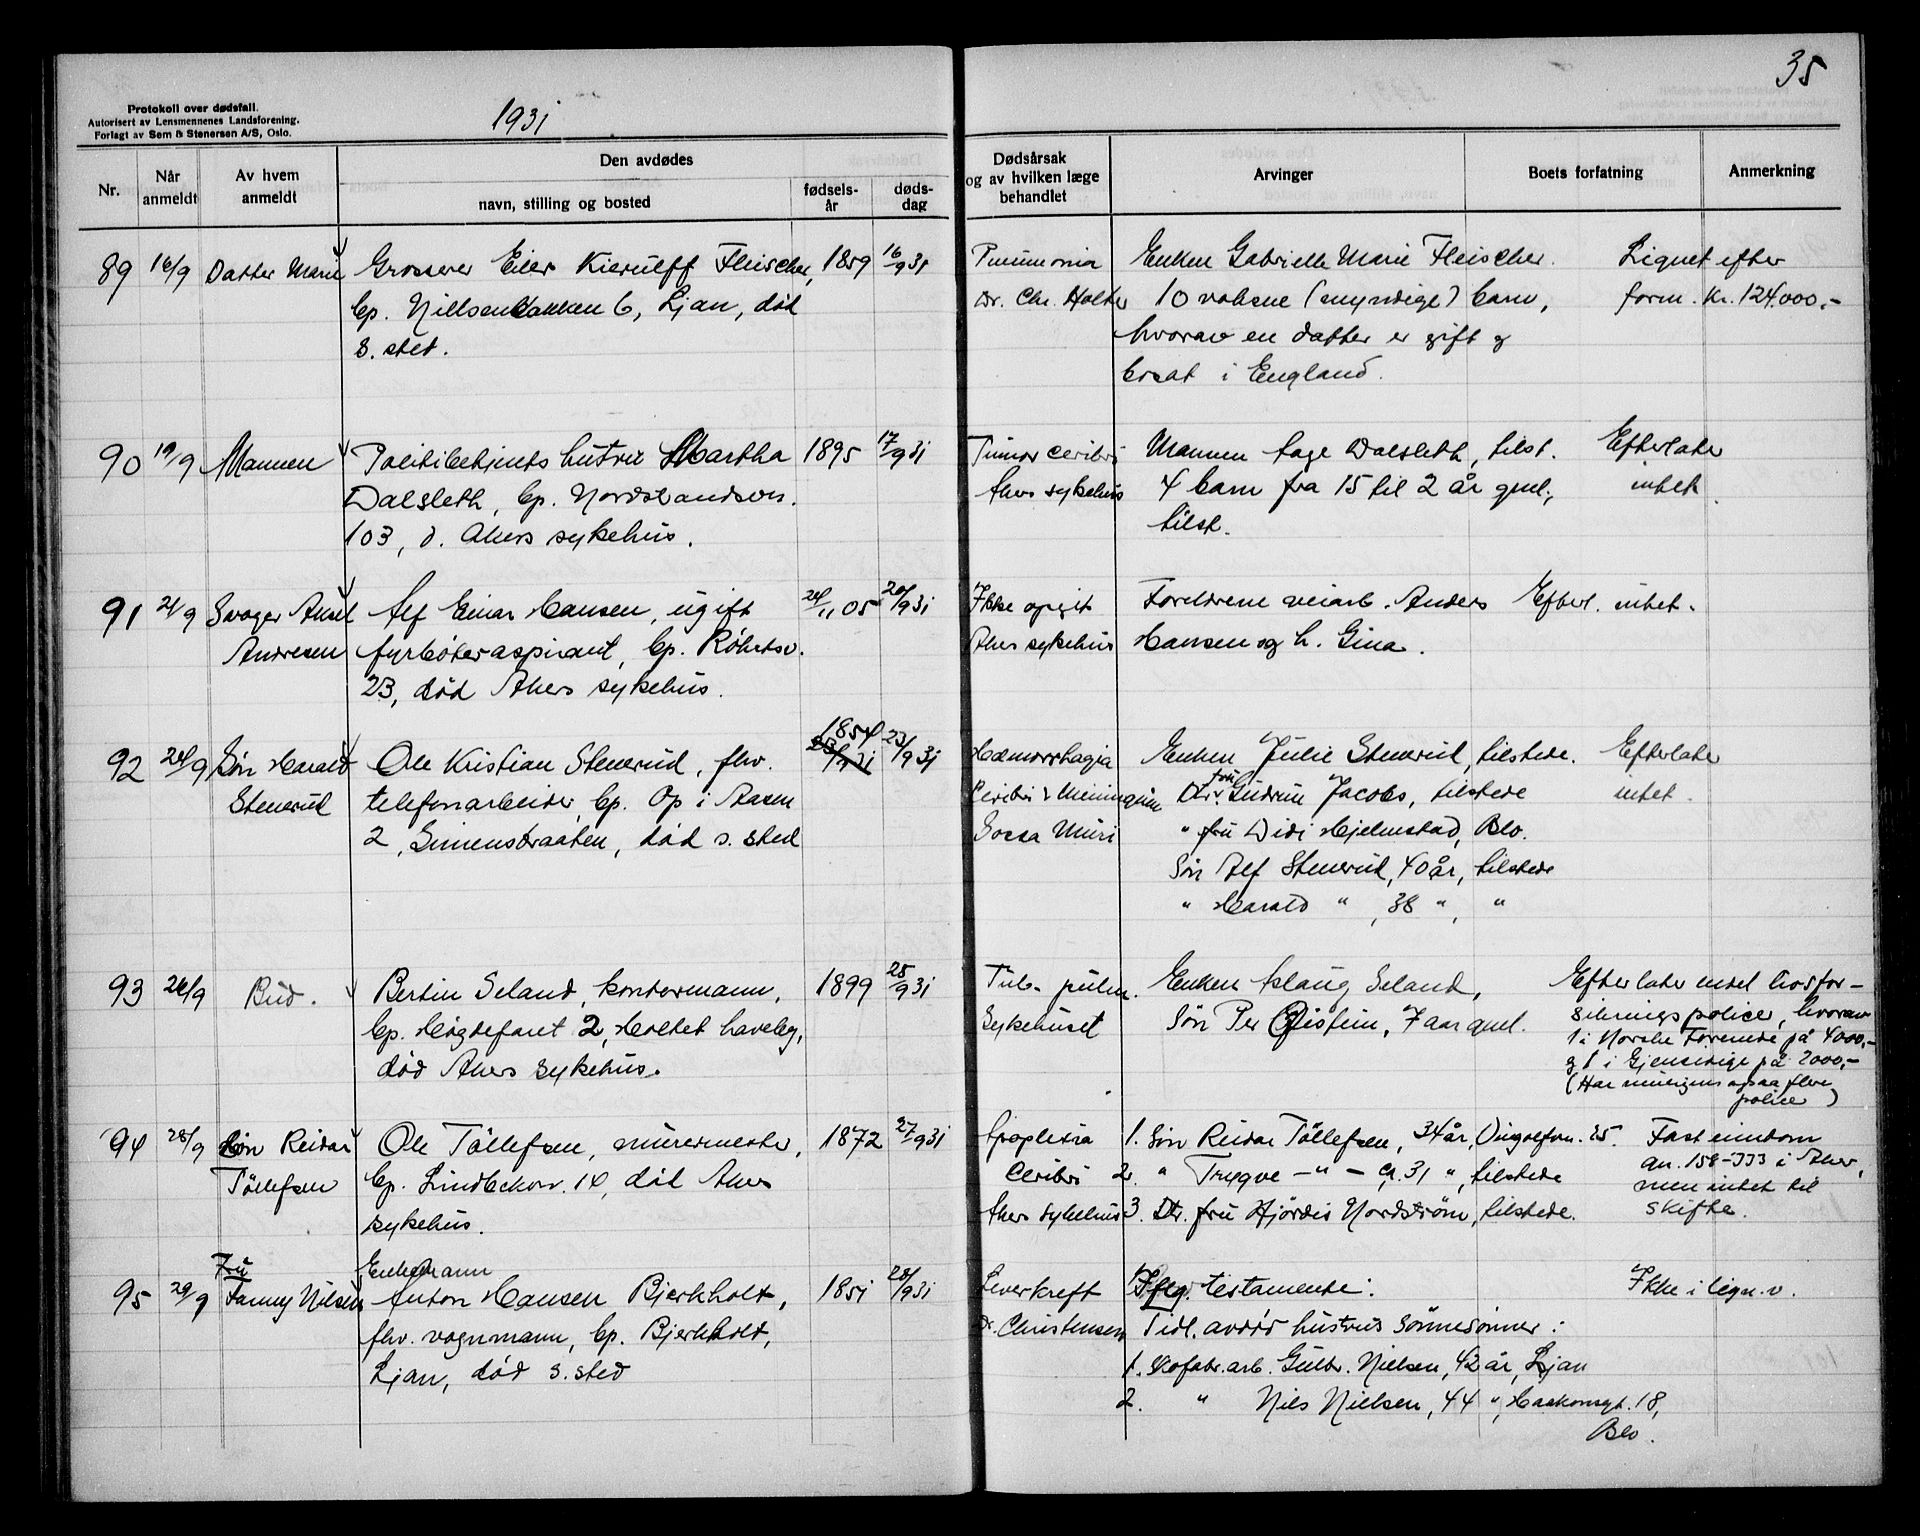 35
Protokoll over dødsfall.
Autorisert av Lensmennenes Landsforening.
Forlagt av Sem & Stenersen A/S, Oslo.
1931
Nr.
Når anmeldt
Av hvem anmeldt
Den avdødes
navn, stilling og bosted
fødsels-år
døds-dag
Dødsårsak og av hvilken læge behandlet
Arvinger
Boets forfatning
Anmerkning
89 16/9 Datter Marie Grosserer Eiler Kierulff Fleischer, 1859 16/9 31 Pneumonia Enken Gabrielle Marie Fleischer. Lignet efter
bp. Nillsenbakken 6, Ljan, død Dr. Chr. Holter 10 voksne (myndige) barn, form. kr. 124.000,-
s. sted. hvorav en datter er gift og
bosat i England.
90 19/9 Mannen Politibetjents hustru Martha 1895 17/9 31 Tumor ceribri Mannen Aage Dalsleth, tilst. Efterlater
Dalsleth, bp. Nordstrandsvn. Akers sykehus 4 barn fra 15 til 2 år gml., intet.
103, d. Akers sykehus. tilst.
91 21/9 Svoger Aksel Alf Einar Hansen, ugift 24/11 05 20/9 31 Ikke opgit Foreldrene veiarb. Anders Efterl. intet.
Andresen fyrbøteraspirant, bp. Röhrtsv. Akers sykehus Hansen og h. Gina.
23, död Akers sykehus.
92 24/9 Sön Harald Ole Kristian Stenerud, fhv. 1854 23/9 31 Hæmorrhagia Enken Julie Stenerud, tilstede. Efterlater
Stenerud telefonarbeider, bp. Op i Aasen Ceribri & Meningium Dtr. fru Gudrun Jacobs, tilstede intet.
2, Simenstraaten, död s. sted " fru Didi Hjelmstad, Oslo.
Sön Alf Stenerud, 40 år, tilstede
" Harald " , 38 ", "
93 26/9 Bud. Bertin Seland, kontormann, 1899 25/9 31 Tub. pulm. Enken Aslaug Seland, Efterlater endel livsfor-
bp. Högdefaret 2, Holtet haveby, Sykehuset Sön Per Öistein, 7 aar gml. sikringspolicer, hvorav
död Akers sykehus. 1 i Norske Forenede på 4000,-
og 1 i Gjensidige på 2000,-
(Har muligens også flere
policer)
94 28/9 Sön Reidar Ole Töllefsen, murermester, 1872 27/9 31 Apoplexia 1. Sön Reidar Töllefsen, 34 år, 25. Fast eiendom
Töllefsen bp. Lindbekkv. 10, död Akers Ceribri 2. " Trygve -"- 31 ", tilstede an. 158-333 i Aker,
sykehus. Akers sykehus 3. Dtr. fru Hjördis Nordström, tilstede. men intet til
skifte.
95 29/9 Fru Enkemann
Fanny Nilsen Anton Hansen Bjerkholt, 1851 28/9 31 Leverkreft Iflg. testamente: Ikke i lign. v.
fhv. vognmann, bp. Bjerkholt, Dr. Christensen Tidl. avdöd hustrus sönnesönner:
Ljan, död s. sted 1. Skofabr.arb. Gulbr. Nielsen, 42 år, Ljan
2. " Nils Nielsen, 44 ", Haakonsgt. 18,
Oslo.